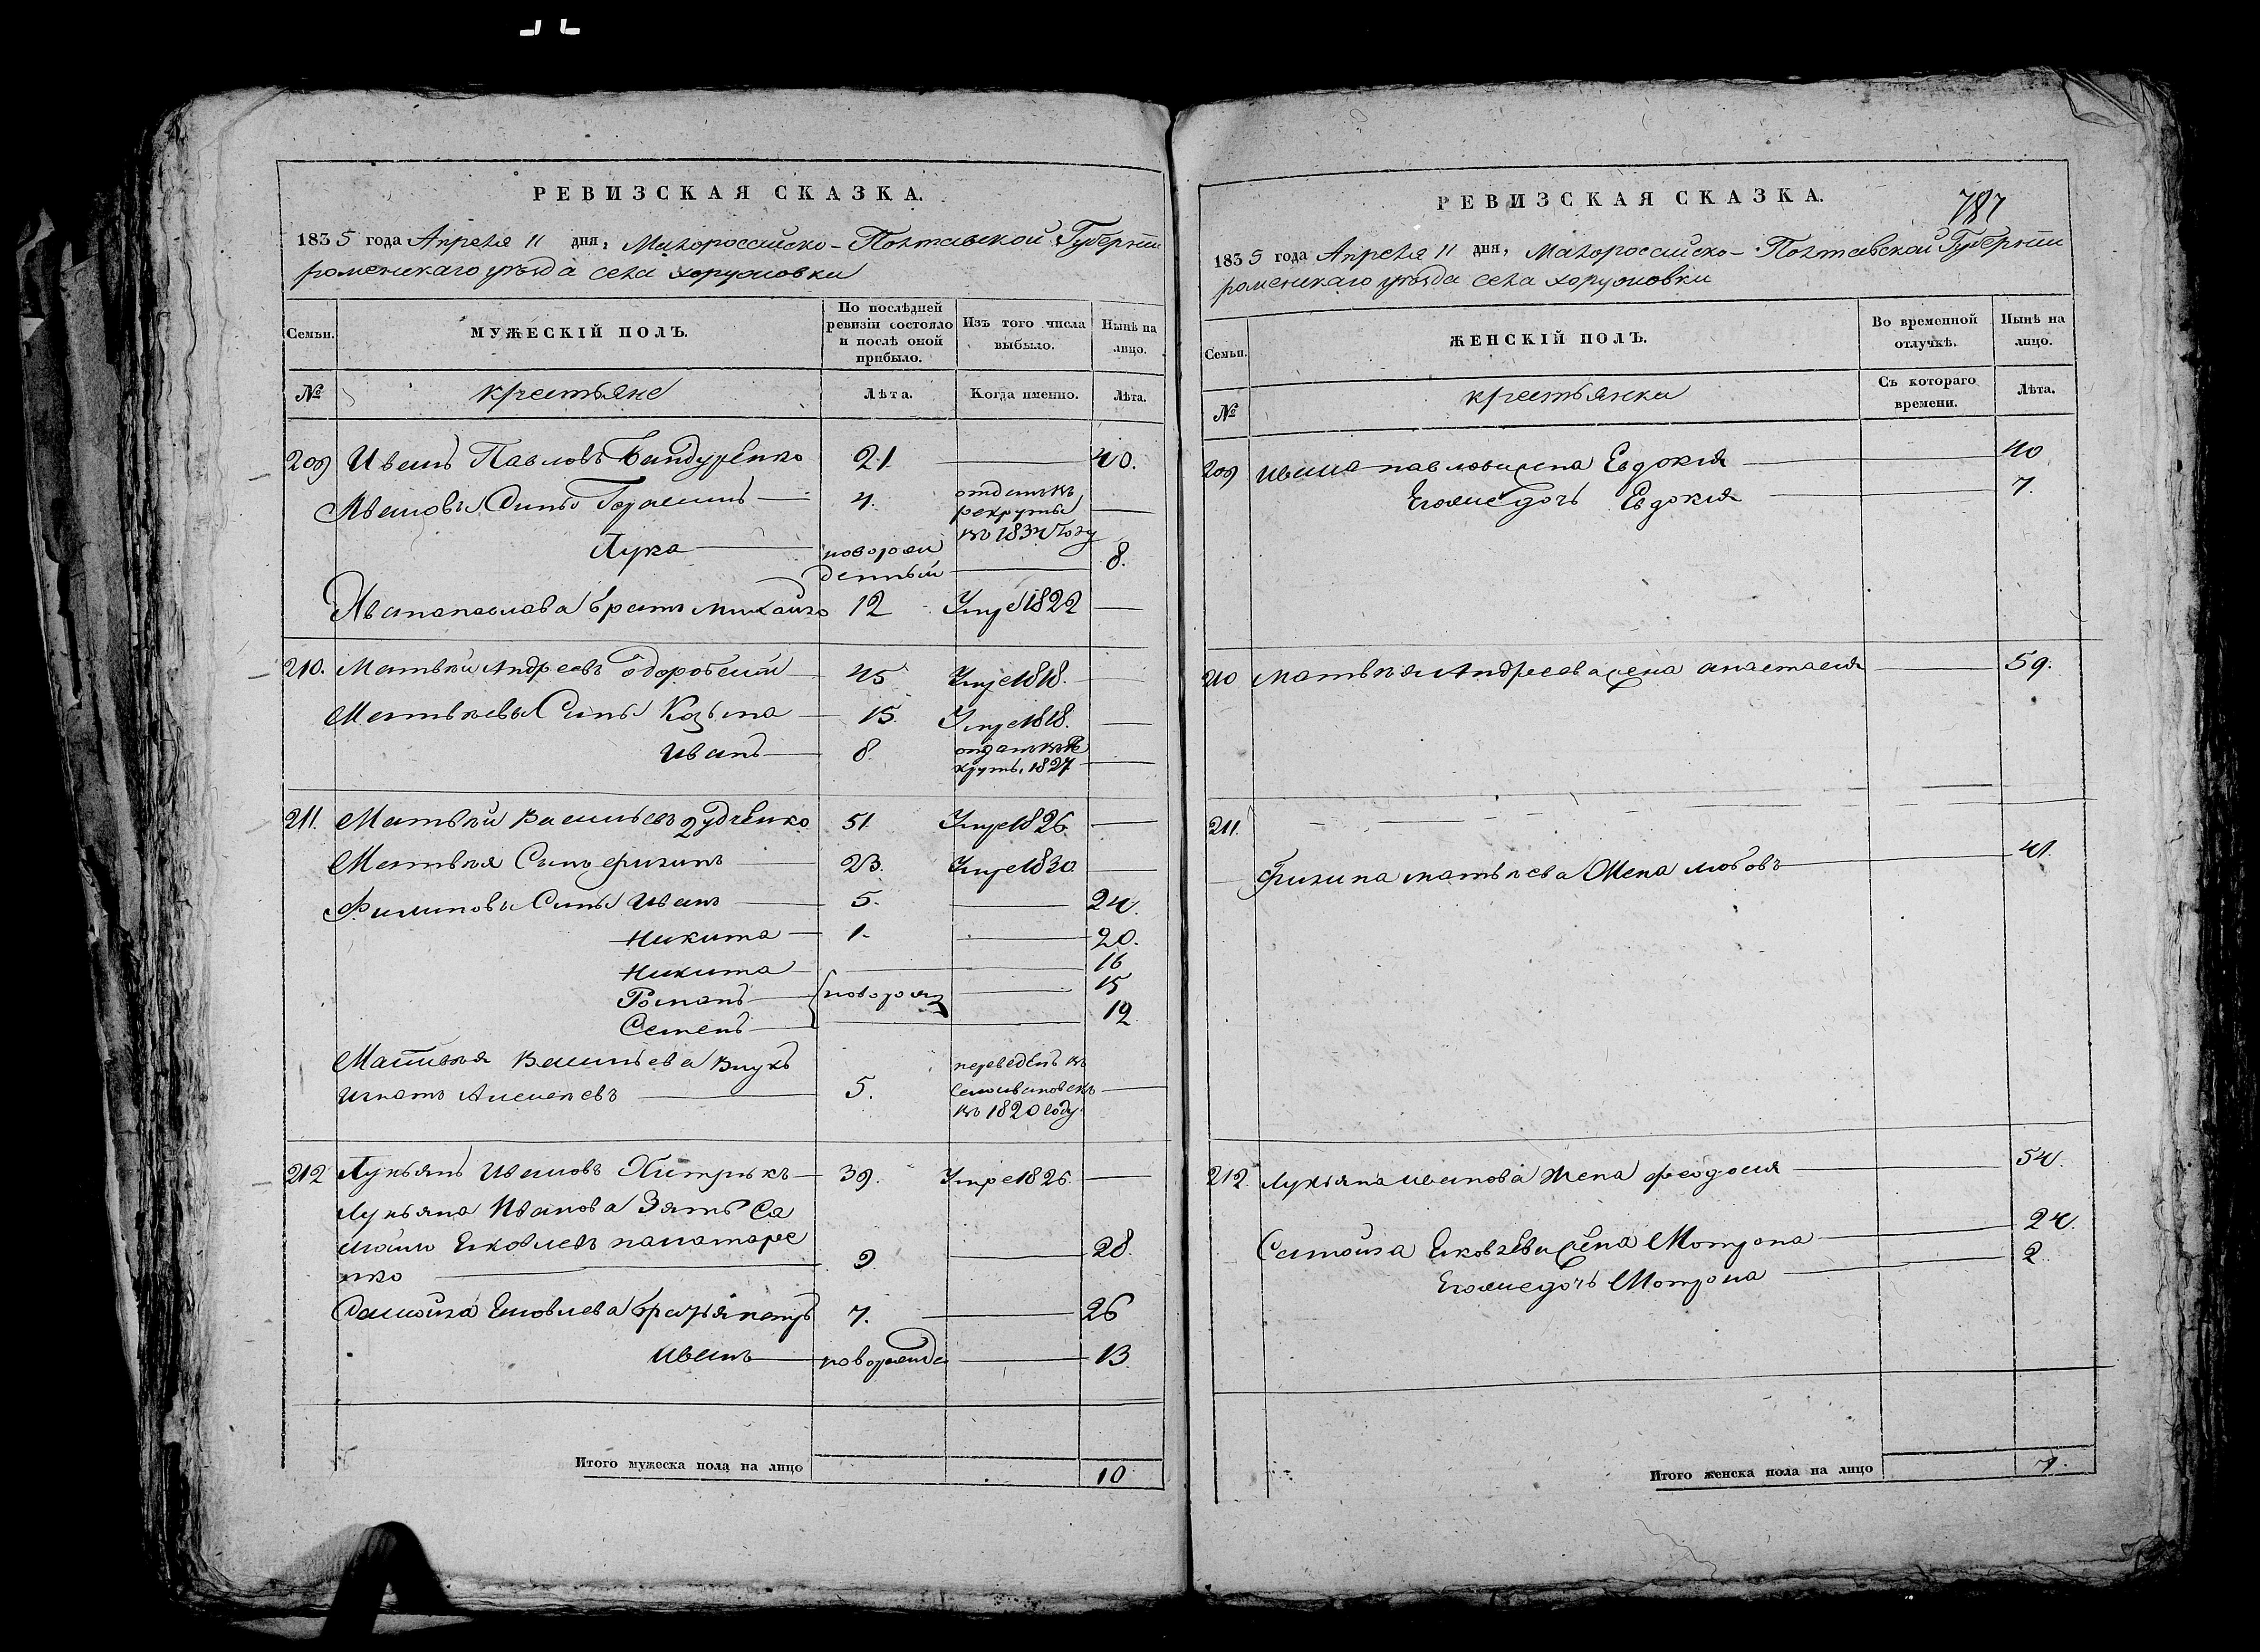 РЕВИЗСКАЯ СКАЗКА.
1835 года Апреля 11 дня, Малороссийско-Полтавской Губернии
роменскаго уезда села хоружовки
Семьи.
МУЖЕСКІЙ ПОЛЪ.
По послѣдней ревизіи состояло и послѣ оной прибыло.
Изъ того числа выбыло.
Нынѣ на лицо.
№
крестьяне
Лѣта.
Когда именно.
Лѣта.
209 Иванъ Павловъ Бандуренко 21. 40.
Ивановы Сины Герасимъ 4. отданъ въ рекруты въ 1834 Году
Лука новорожденный 8.
Ивана павлова братъ михайло 12 Умре 1822
210. Матвѣй Андреевъ 45 Умре 1818.
Матвѣевы Сины Козьма 15. Умре 1818.
Иванъ 8. отданъ въ Рекруты 1827
211. Матвѣй Васильевъ Дудченко 51. Умре 1826.
Матвѣя Сынъ филипъ 23. Умре 1830
Филиповы Сины Иванъ 5. 24.
Никита 1. 20.
Никита 16
Романъ новорож 15
Семенъ 12
Матвѣя Васильева Внукъ
игнатъ Алексѣевъ 5. переведенъ въ въ 1820 году
212 Лукьянъ Ивановъ Хитрикъ 39. Умре 1826.
Лукьяна Иванова Зять Са
мойло Яковлевъ панатаре
нко 9 28.
Самойла Яковлева братья петръ 7. 26
Иванъ новорожде 13.
Итого мужеска пола на лицо 10
РЕВИЗСКАЯ СКАЗКА. 787
1835 года Апреля 11 дня, Малороссийско-Полтавской Губернии
роменскаго уезда села хоружовки
Семьи.
ЖЕНСКІЙ ПОЛЪ.
Во временной отлучкѣ.
Нынѣ на лицо.
№
крестьянки
Съ котораго времени.
Лѣта.
209 Ивана павлова жена Евдокія 40
Егоже дочь Евдокія 7.
210 матвѣя Андреева жена анастасия 59.
211.
Филипа матвѣева Жена любовь 41.
212. Лукьяна иванова Жена феодосия 54.
Самойла Яковлева жена Мотрона 24.
Егоже дочь Мотрона 2
Итого женска пола на лицо 7.